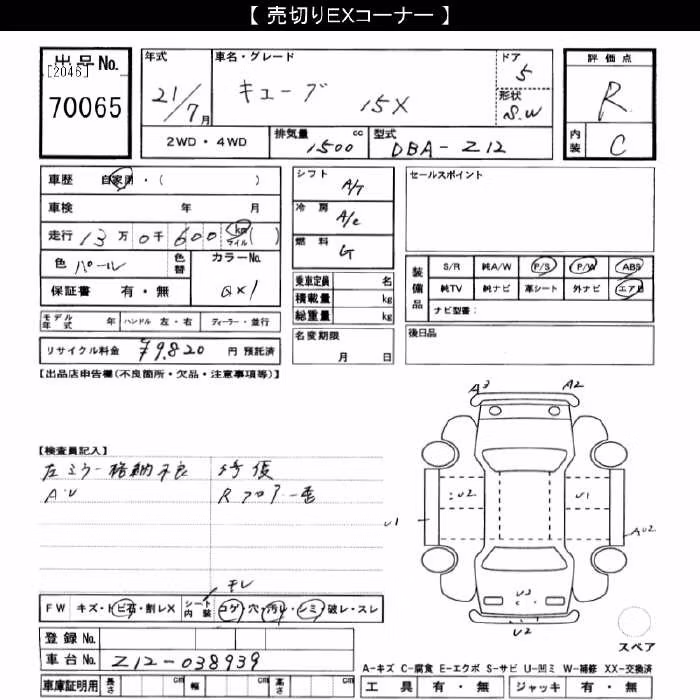 【 売切りEXコーナー 】
出品No.
[2046]
70065
年式 21/7月
車名・グレード キューブ 15X
ドア 5
形状 S.W
評価点 R
内装 C
2WD・4WD
排気量 1500 cc
型式 DBA-Z12
車歴 自家用・( )
車検 年 月
走行 13万0千600 km マイル ( )
色 パール
色替
カラーNo. QX1
保証書 有・無
モデル年式 年
ハンドル 左・右
ディーラー・並行
リサイクル料金 ¥9,820 円 預託済
シフト A/T
冷房 A/C
燃料 G
乗車定員 名
積載量 kg
総重量 kg
名変期限 月 日
セールスポイント
装備品
S/R 純A/W P/S P/W ABS
純TV 純ナビ 革シート 外ナビ エアB
ナビ型番:
後日品
【出品店申告欄(不良箇所・欠品・注意事項等)】
【検査員記入】
左ミラー格納不良
A・U
Rフロアー
A3 A2
U2 U1
U1 AU2
U3
U2
スペア
FW キズ・トビ石・割レX
シート内装 コゲ・穴・汚レ・シミ・破レ・スレ
登録No.
車台No. Z12-038939
車庫証明用 長さ cm 幅 cm 高さ cm
A-キズ C-腐食 E-エクボ S-サビ U-凹ミ W-補修 XX-交換済
工具 有・無 ジャッキ 有・無